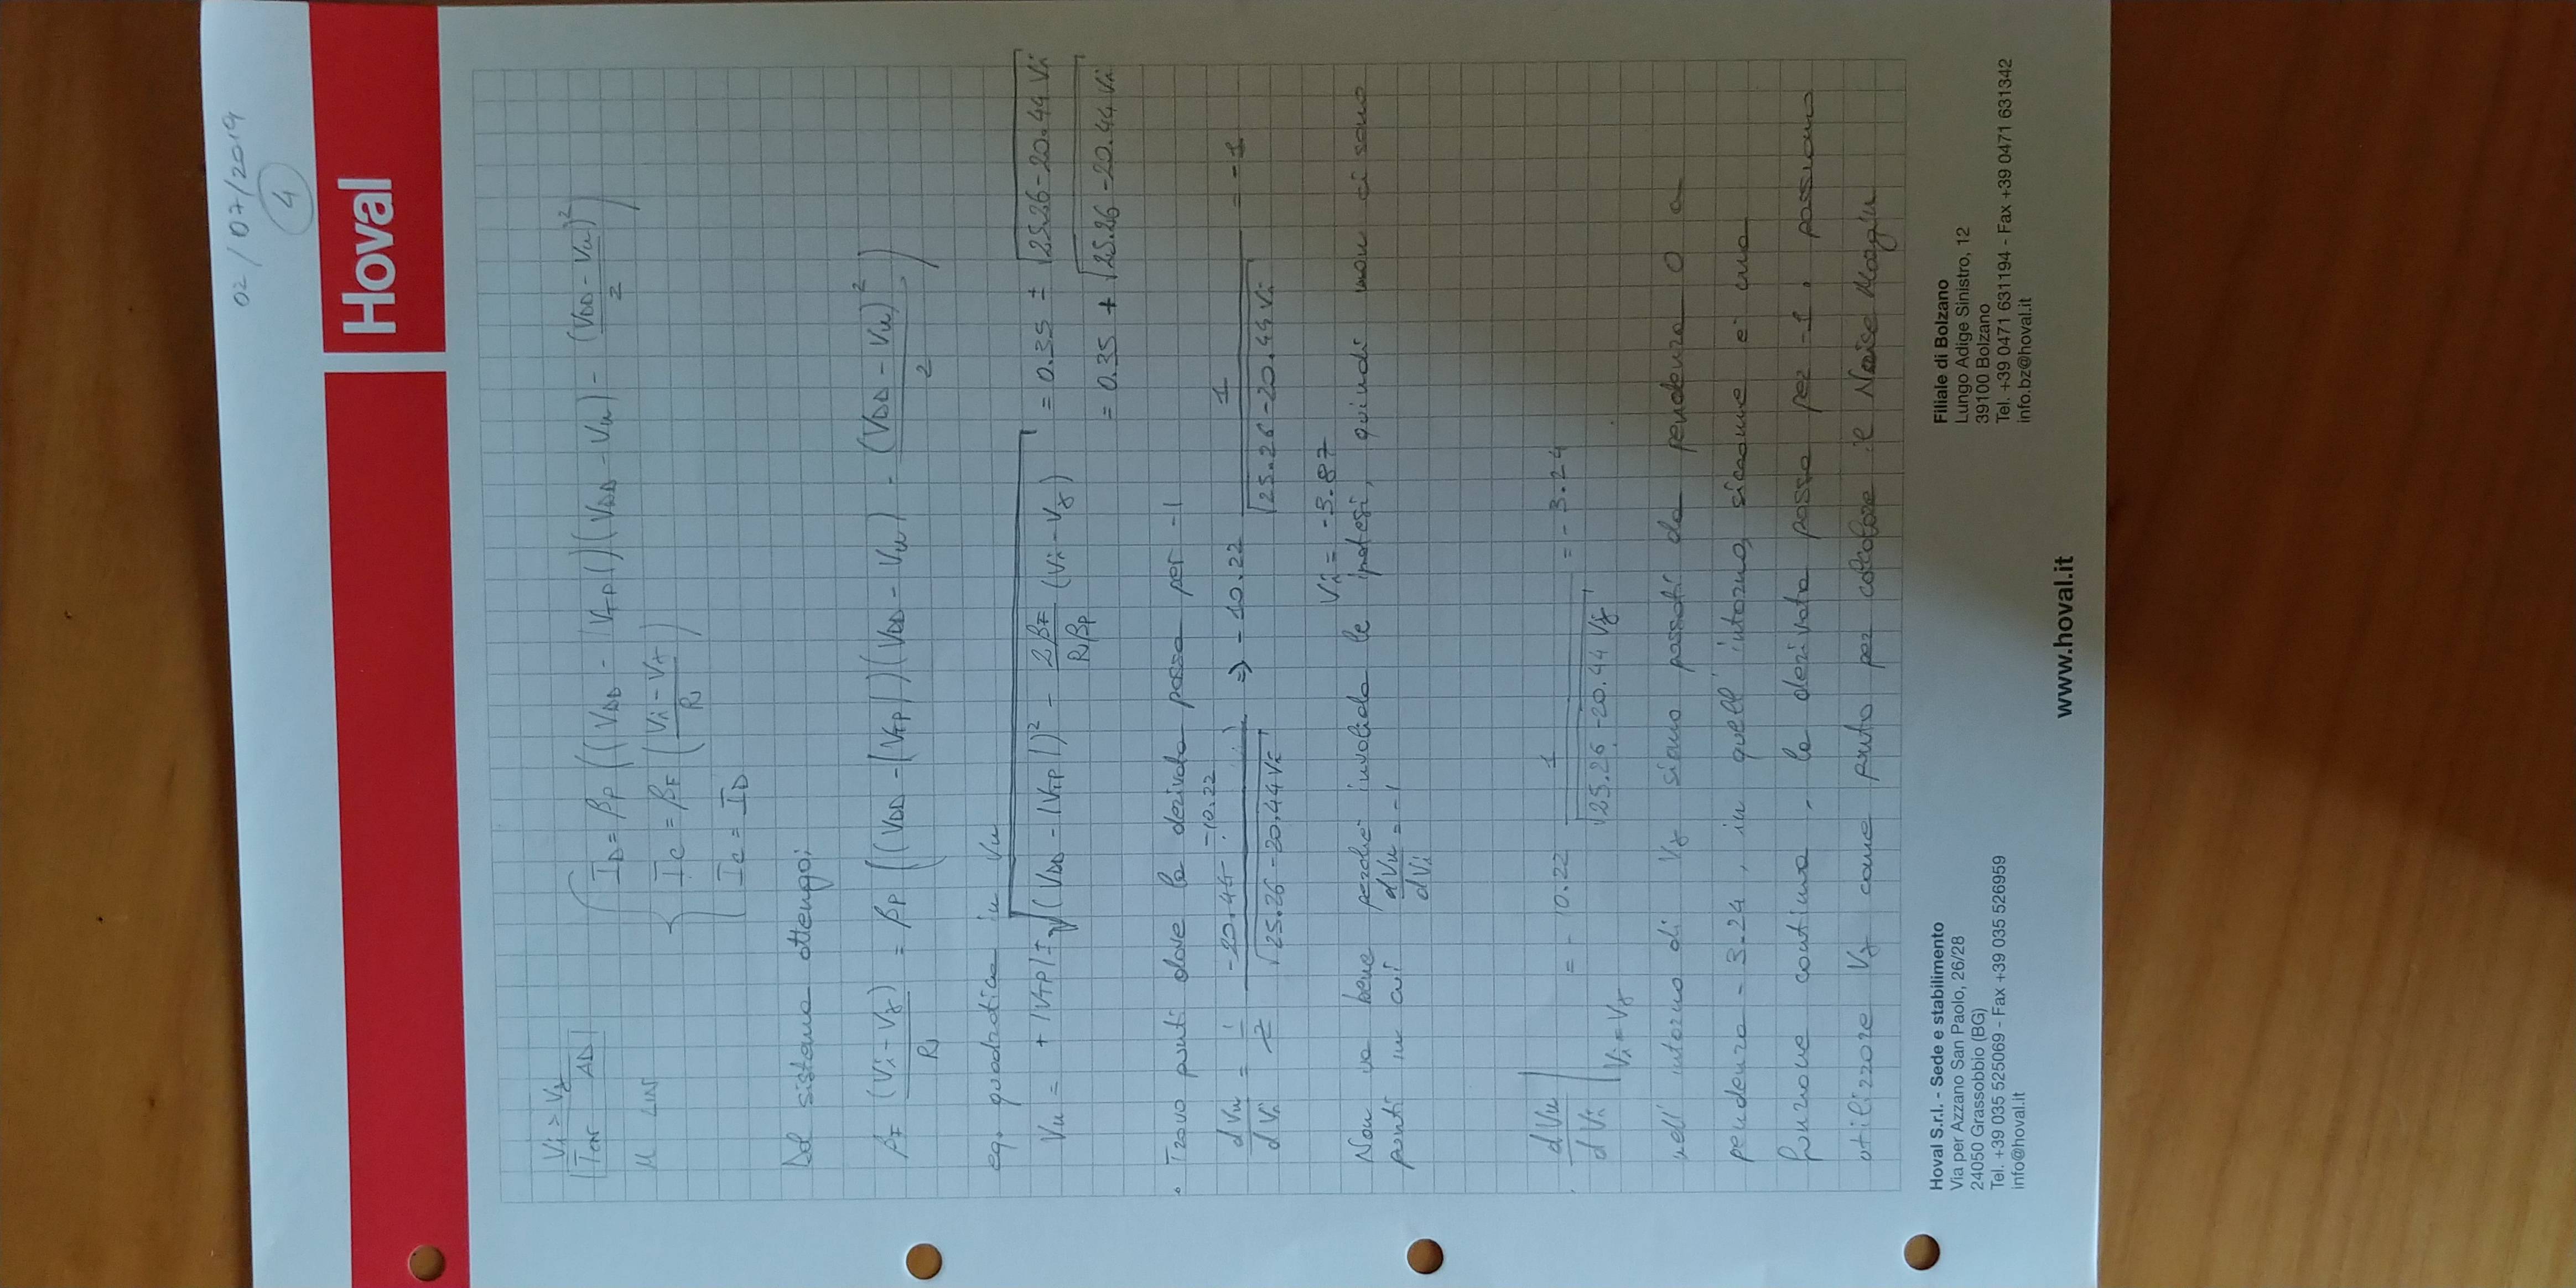 02/07/2019
4
Hoval
Vi > Vγ
Ton AD
M LIN
I_D = β_P ((V_DD - |V_TP|)(V_DD - Vu) - (V_DD - Vu)²/2)
I_C = β_F ((Vi - Vγ)/R)
I_C = I_D
Dal sistema ottengo:
β_F (Vi - Vγ)/R = β_P ((V_DD - |V_TP|)(V_DD - Vu) - (V_DD - Vu)²/2)
eq. quadratica in Vu
Vu = + |V_TP| ± √((V_DD - |V_TP|)² - 2β_F/(Rβ_P) (Vi - Vγ)) = 0.35 ± √(25.26 - 20.44 Vi)
= 0.35 + √(25.26 - 20.44 Vi)
• Trovo punti dove la derivata passa per -1
dVu/dVi = 1/2 -20.44 -10.22 /√(25.26 - 20.44 Vi) ⇒ -10.22 1/√(25.26 - 20.44 Vi) = -1
Vi = -3.87
Non va bene perché invalida le ipotesi, quindi non ci sono
punti in cui dVu/dVi = -1
dVu/dVi |Vi = Vγ = - 10.22 1/√(25.26 - 20.44 Vγ) = - 3.24
nell'intorno di Vγ siamo passati da pendenza 0 a
pendenza - 3.24, in quell'intorno, siccome è una
funzione continua, la derivata passa per -1. possiamo
utilizzare Vγ come punto per calcolare il Noise Margin
Hoval S.r.l. - Sede e stabilimento
Via per Azzano San Paolo, 26/28
24050 Grassobbio (BG)
Tel. +39 035 525069 - Fax +39 035 526959
info@hoval.it
Filiale di Bolzano
Lungo Adige Sinistro, 12
39100 Bolzano
Tel. +39 0471 631194 - Fax +39 0471 631342
info.bz@hoval.it
www.hoval.it